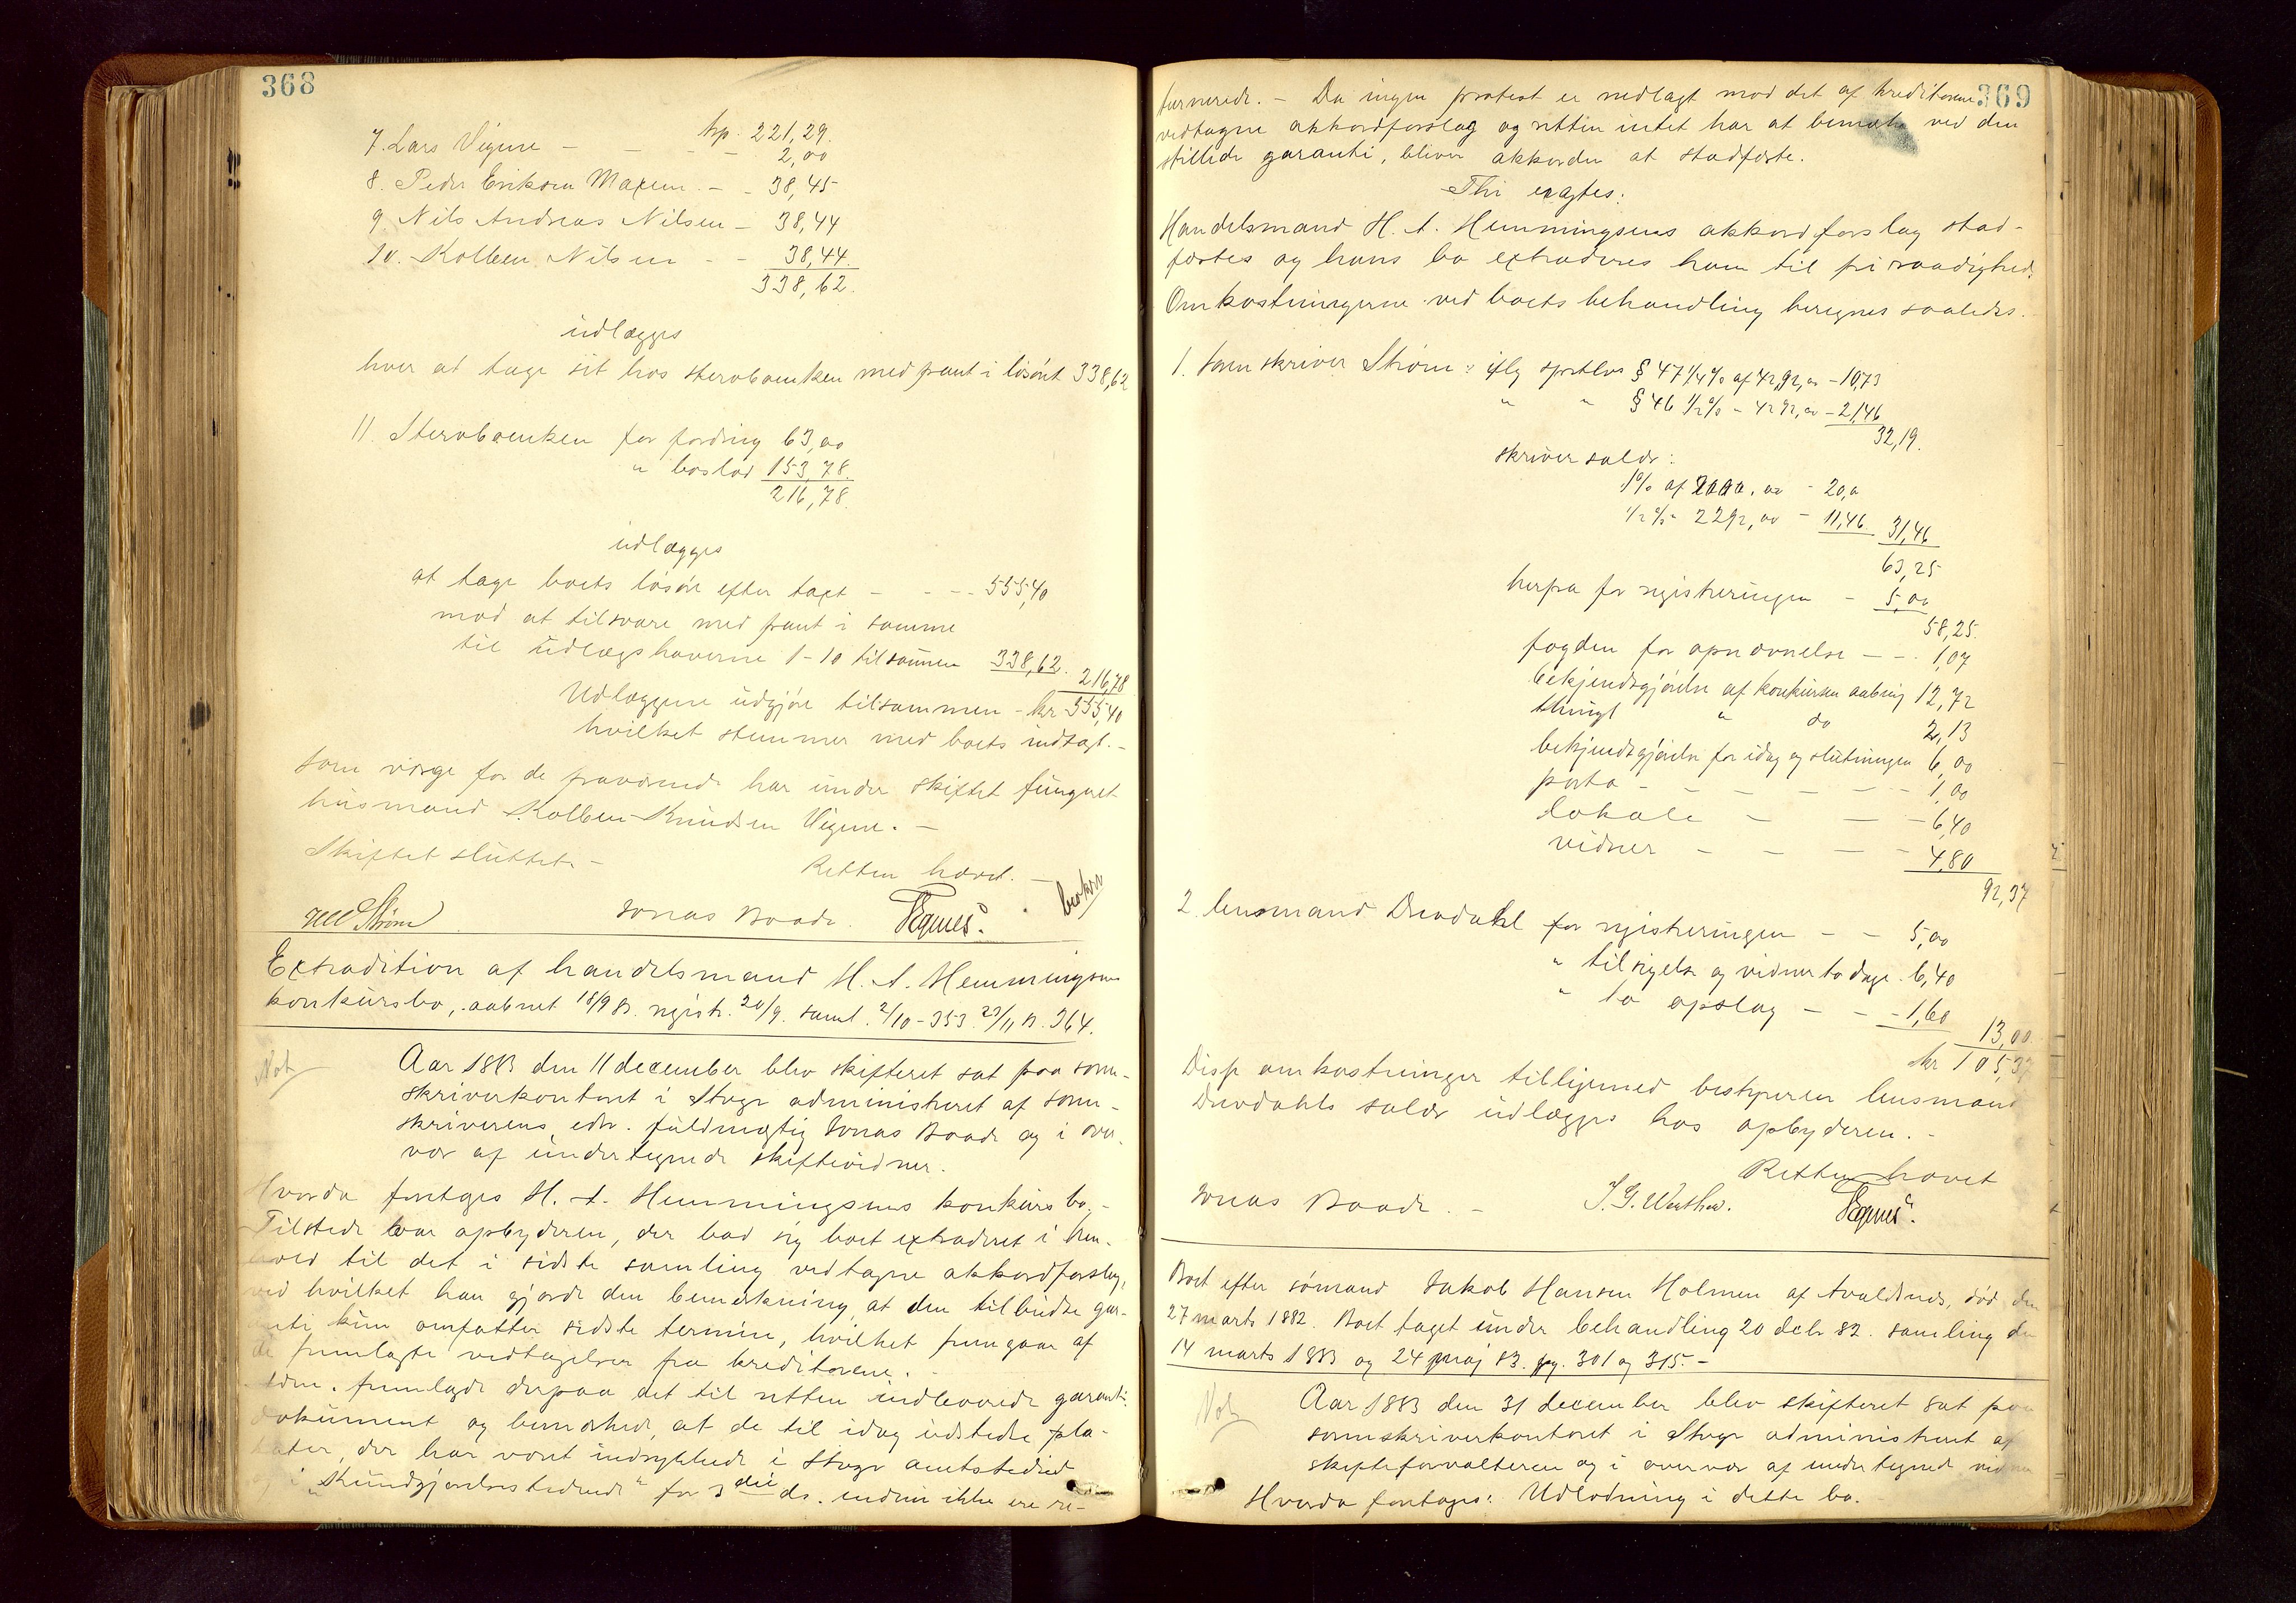 368
trp. 221,29.
7. Lars Vigene - - - - 2,00
8. Peder Eriksen Moxem - - 38,45
9. Nils Andreas Nilsen - 38,44
10. Kolben Nilsen - - 38,44.
338,62.
udlægges
hver at tage sit hos stervboenken med pant i løsøret 338,62
11. Stervboenken for fordring 63,00
" boslod 153,78.
216,78.
udlægges
at tage boets løsøre efter taxt - - - - 555,40
mod at tilsvare med pant i samme
til udlægshaverne 1-10 tilsammen 338,62. 216,78
Udlæggene udgjøre tilsammen - kr 555,40
hvilket stemmer med boets indtægt. -
Som værge for de fraværende har under skiftet fungeret
husmand Kolben Knudsen Vigene. -
Skiftet sluttet. - Retten hævet. -
Strøm Jonas Boade.
Extradition af handelsmand H. A. Hemmingsens
konkursbo, aabnet 18/9 83. registr. 20/9. saml. 2/10 - 353. 23/11 S. 364.
Not
Aar 1883 den 11 december blev skifteret sat paa soren-
skriverkontoret i Stege administreret af soren-
skriverens edsv. fuldmægtig Jonas Boade og i over-
vær af undertegnede skiftevidner.
Hvorda foretoges H. A. Hemmingsens konkursbo. -
Tilstede var opbyderen, der bad sig boet extraderet i hen-
hold til det i sidste samling vedtagne akkordforslag,
ved hvilket han gjorde den bemerkning, at den tilbudte gar-
anti kun omfatter sidste termin, hvilket fremgaar af
de fremlagte vedtagelser fra kreditorene. -
Adm. fremlagde derpaa det til retten indleverede garanti-
dokument og bemerkede, at de til idag udstedte pla-
kater, der har været indrykkede i Stege amtstidend
og i "Kundgjørelsestidende" for 3die ds. endnu ikke ere re-
369
turnerede. - Da ingen protest er nedlagt mod det af kreditorene
vedtagne akkordforslag og retten intet har at bemærke ved den
stillede garanti, bliver akkorden at stadfæste.
Thi eragtes:
Handelsmand H. A. Hemmingsens akkordforslag stad-
fæstes og hans bo extraderes ham til fri raadighed.
Omkostningerne ved boets behandling beregnes saaledes.
1. Sorenskriver Strøm: iflg sprtlov § 47 1/4 % af 4292,00 - 10,73
" " § 46 1/2 % - 4292,00 - 21,46
32,19.
skriversalær:
1 % af 2000,00 - 20,0
1/2 % - 2292,00 - 11,46. 31,46
63,25
herfra for registreringen - 5,00
58,25.
fogden for opnævnelse - - 1,07
bekjendtgjørelse af konkursens aabning 12,72
thingl " do 2,13
bekjendtgjørelse for idag og slutningen 6,00
porto - - - - - - 1,00
Lokale - - - 6,40
vidner - - - - 4,80
92,37
2. lensmand Duodahl for registreringen - - 5,00
" tilsigelse og vidner to dage. 6,40
" to opslag - - - 1,60 13,00.
kr 105,37
Disse omkostninger tilligemed bestyreren lensmand
Duodahls salær udlægges hos opbyderen. -
Retten hævet
Jonas Boade. -
Boet efter sømand Jakob Hansen Holmen af Avaldsnes, død den
27 marts 1882. Boet taget under behandling 20 decbr 82. samling den
14 marts 1883 og 24 maj 83. pg. 301 og 315. -
Not
Aar 1883 den 31 december blev skifteret sat paa
sorenskriverkontoret i Stege administreret af
skifteforvalteren og i overvær af undertegned vidner
Hvorda foretages: Udlodning i dette bo.